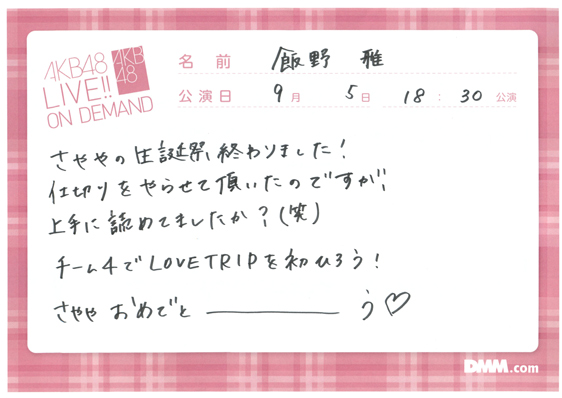 AKB48
LIVE!!
ON DEMAND
AKB
48
名前 飯野 雅
公演日 9月 5日 18:30公演
さややの生誕祭、終わりました!
仕切りをやらせて頂いたのですが、
上手に詰めてましたか?(笑)
チーム4でLOVETRIPを初ひろう!
さやや おめでと――――う♡
DMM.com